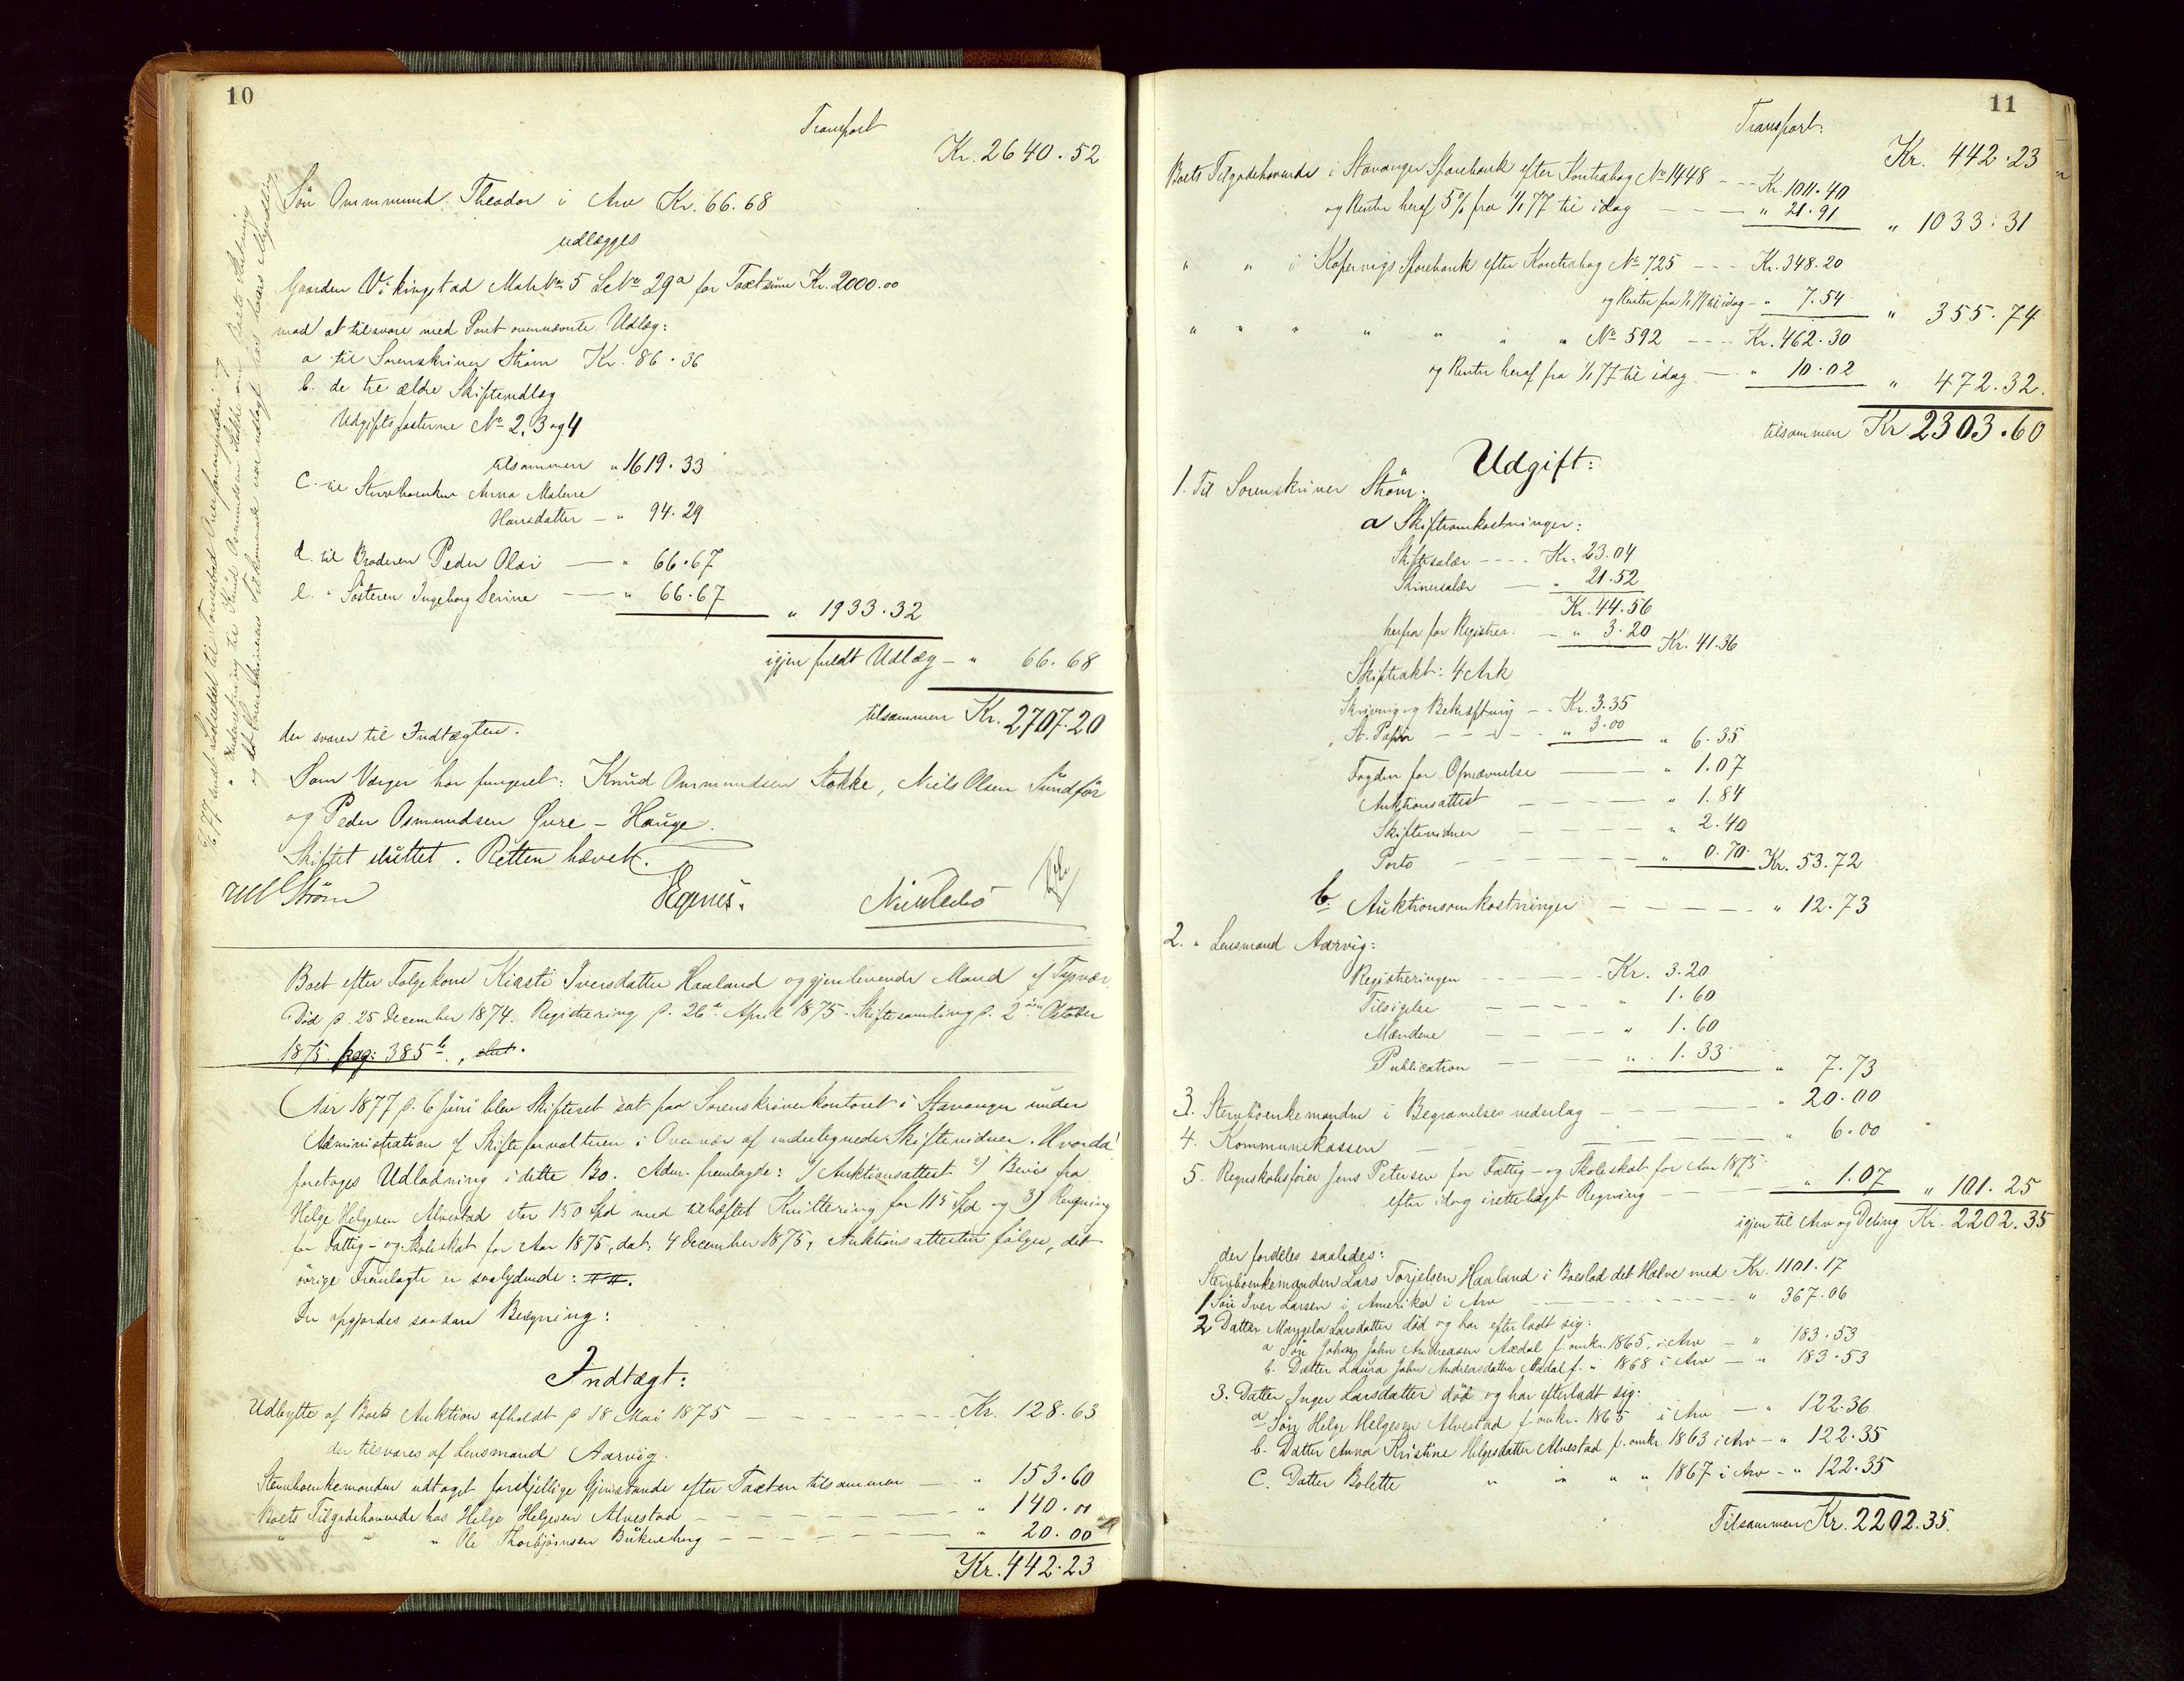 10
Transport
Kr. 2640.52
Søn Ommmund Theodor i Arv Kr. 66.68
udlægges
Gaarden Vikingstad Matr No 5 Lb No 29a for Taxtsum Kr. 2000.00
mod at tilsvare med Pant ovennævnte Udlæg:
a til Sorenskriver Strøm Kr. 86.36
b. de tre ældre Skifteudlæg
Udgiftsposterne No 2, 3 og 4
tilsammen " 1619.33
c. til Stervboenken Anna Malene
Hansdatter — " 94.29
d. til Broderen Peder Olai — " 66.67
e. " Søsteren Ingeborg Serine — " 66.67
" 1933.32
igjen fuldt Udlæg — " 66.68
tilsammen Kr. 2707.20
der svarer til Indtægten.
Som Værger har fungeret: Knud Ommundsen Stokke, Niels Olsen Sundfør
og Peder Osmundsen Øvre - Hauge.
Skiftet sluttet. Retten hævet.
Strøm
Boet efter Følgekone Kirsti Iversdatter Haaland og gjenlevende Mand af Tysvær.
Død d. 25 December 1874. Registrering d. 26de April 1875 - Skiftesamling d. 2den October
1875 pag: 385 b., slut.
Aar 1877 d. 6 Juni blev Skifteret sat paa Sorenskriverkontoret i Stavanger under
Administration af Skifteforvalteren i Overvær af undertegnede Skiftevidner. Hvorda
foretoges Udlodning i dette Bo. Adm. fremlagde: 1) Auktionsattest 2) Bevis fra
Helge Helgesen Alvestad stor 150 Spd med vehæftet Kvittering for 115 Spd og 3) Regning
for Fattig- og Skoleskat for Aar 1875, dat. 4 December 1875, Auktionsattesten følger, det
øvrige Fremlagte er saalydende: ##.
Der opgjordes saadan Beregning:
Indtægt:
Udbytte af Boets Auktion afholdt d 18 Mai 1875 — Kr. 128.63
der tilsvares af Lensmand Aarvig.
Stervboenkemanden udtaget forskjellige Gjenstande efter Taxten tilsammen — " 153.60
Boets Tilgodehavende hos Helge Helgesen Alvestad — " 140.00
" " " Ole Thorbjørnsen — " 20.00
Kr. 442.23
11
Transport:
Kr. 442.23
Boets Tilgodehavende i Stavanger Sparebank efter Kontrabog No 1448 - - Kr. 1011.40
og Renter heraf 5% fra 1/1 77 til idag — " 21.91 " 1033.31
" " i Kopervigs Sparebank efter Kontrabog No 725 - - - Kr. 348.20
og Renter fra 1/1 77 til idag - " 7.54 " 355.74
" " " " " " " No 592 - - - Kr. 462.30
og Renter heraf fra 1/1 77 til idag — " 10.02 " 472.32.
tilsammen Kr 2303.60
Udgift:
1. Til Sorenskriver Strøm:
a Skifteomkostninger:
Skiftesalær - - - - Kr. 23.04
Skriversalær — " 21.52
Kr. 44.56
herfra for Registrer. — " 3.20 Kr. 41.36
Skifteakt: 4 Ark
Skrivning og Bekræftning - - Kr. 3.35
St. Papir - - - - " 3.00 " 6.35
Fogden for Opnævnelse — " 1.07
Auktionsattest — " 1.84
Skiftevidner — " 2.40
Porto — " 0.70 Kr. 53.72
b. Auktionsomkostninger — " 12.73
2. " Lensmand Aarvig:
Registreringen - - - - Kr. 3.20
Tilsigelse — " 1.60
Mændene — " 1.60
Publication — " 1.33 " 7.73
3. Stervboenkemanden i Begravelsesvederlag — " 20.00
4. Kommunekassen — " 6.00
5. Regnskabsfører Jens Petersen for Fattig- og Skoleskat for Aar 1875
efter idag irettelagt Regning — " 1.07 " 101.25
igjen til Arv og Deling Kr. 2202.35
der fordeles saaledes:
Stervboenkemanden Lars Torjelsen Haaland i Boeslod det Halve med Kr. 1101.17
1 Søn Iver Larsen i Amerika i Arv — " 367.06
2 Datter Margela Larsdatter død og har efterladt sig:
a Søn Johan John Andreasen Aadal f. omkr. 1865, i Arv — " 183.53
b. Datter Laura John Andreasdatter Aadal f. " 1868 i Arv — " 183.53
3. Datter Inger Larsdatter død og har efterladt sig:
a Søn Helge Helgesen Alvestad f. omkr. 1865 i Arv — " 122.36
b. Datter Anna Kristine Helgesdatter Alvestad f. omkr. 1863 i Arv — " 122.35
c. Datter Bolette " " " " 1867 i Arv — " 122.35
Tilsammen Kr. 2202.35.